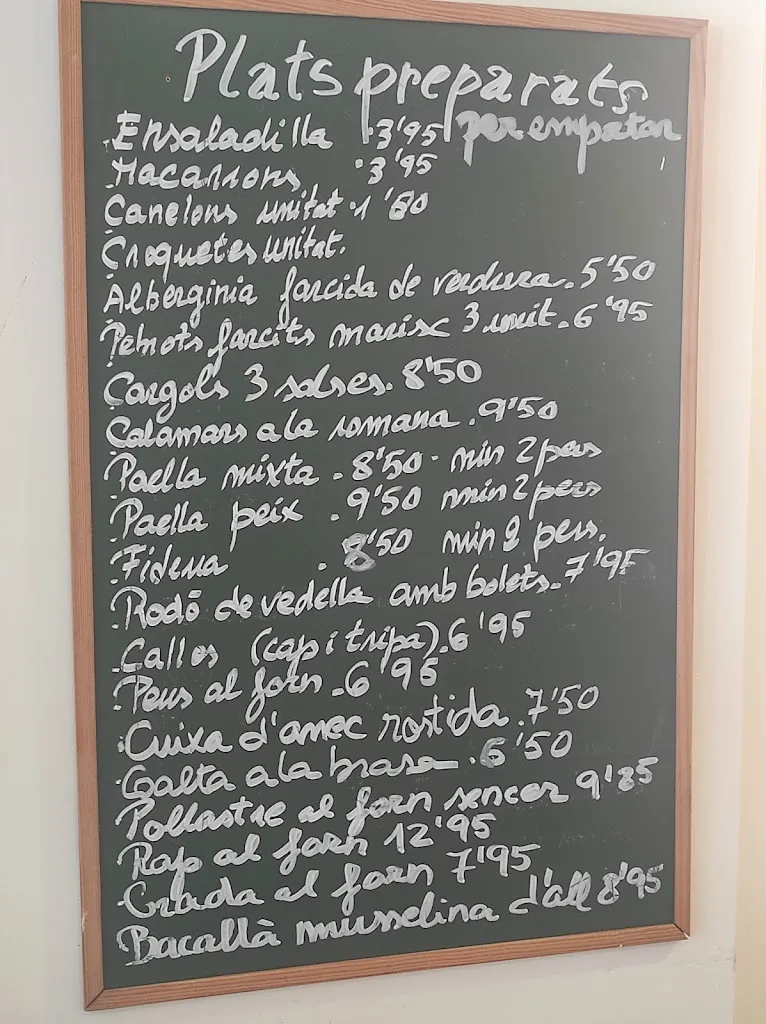 Plats preparats
per emportar
Ensaladilla 3'95
Macarrons 3'95
Canelons unitat. 1'80
Croquetes unitat.
Alberginia farcida de verdura. 5'50
Pebrots farcits marisc 3 unit. 6'95
Cargols 3 salses. 8'50
Calamars a la romana. 9'50
Paella mixta. 8'50 min 2 pers
Paella peix. 9'50 min 2 pers
Fideua. 8'50 min 2 pers.
Rodó de vedella amb bolets. 7'95
Callos (cap i tripa). 6'95
Peus al forn. 6'95
Cuixa d'anec rostida. 7'50
Galta a la brasa. 6'50
Pollastre al forn sencer 9'85
Rap al forn 12'95
Orada al forn 7'95
Bacallà musselina d'all 8'95